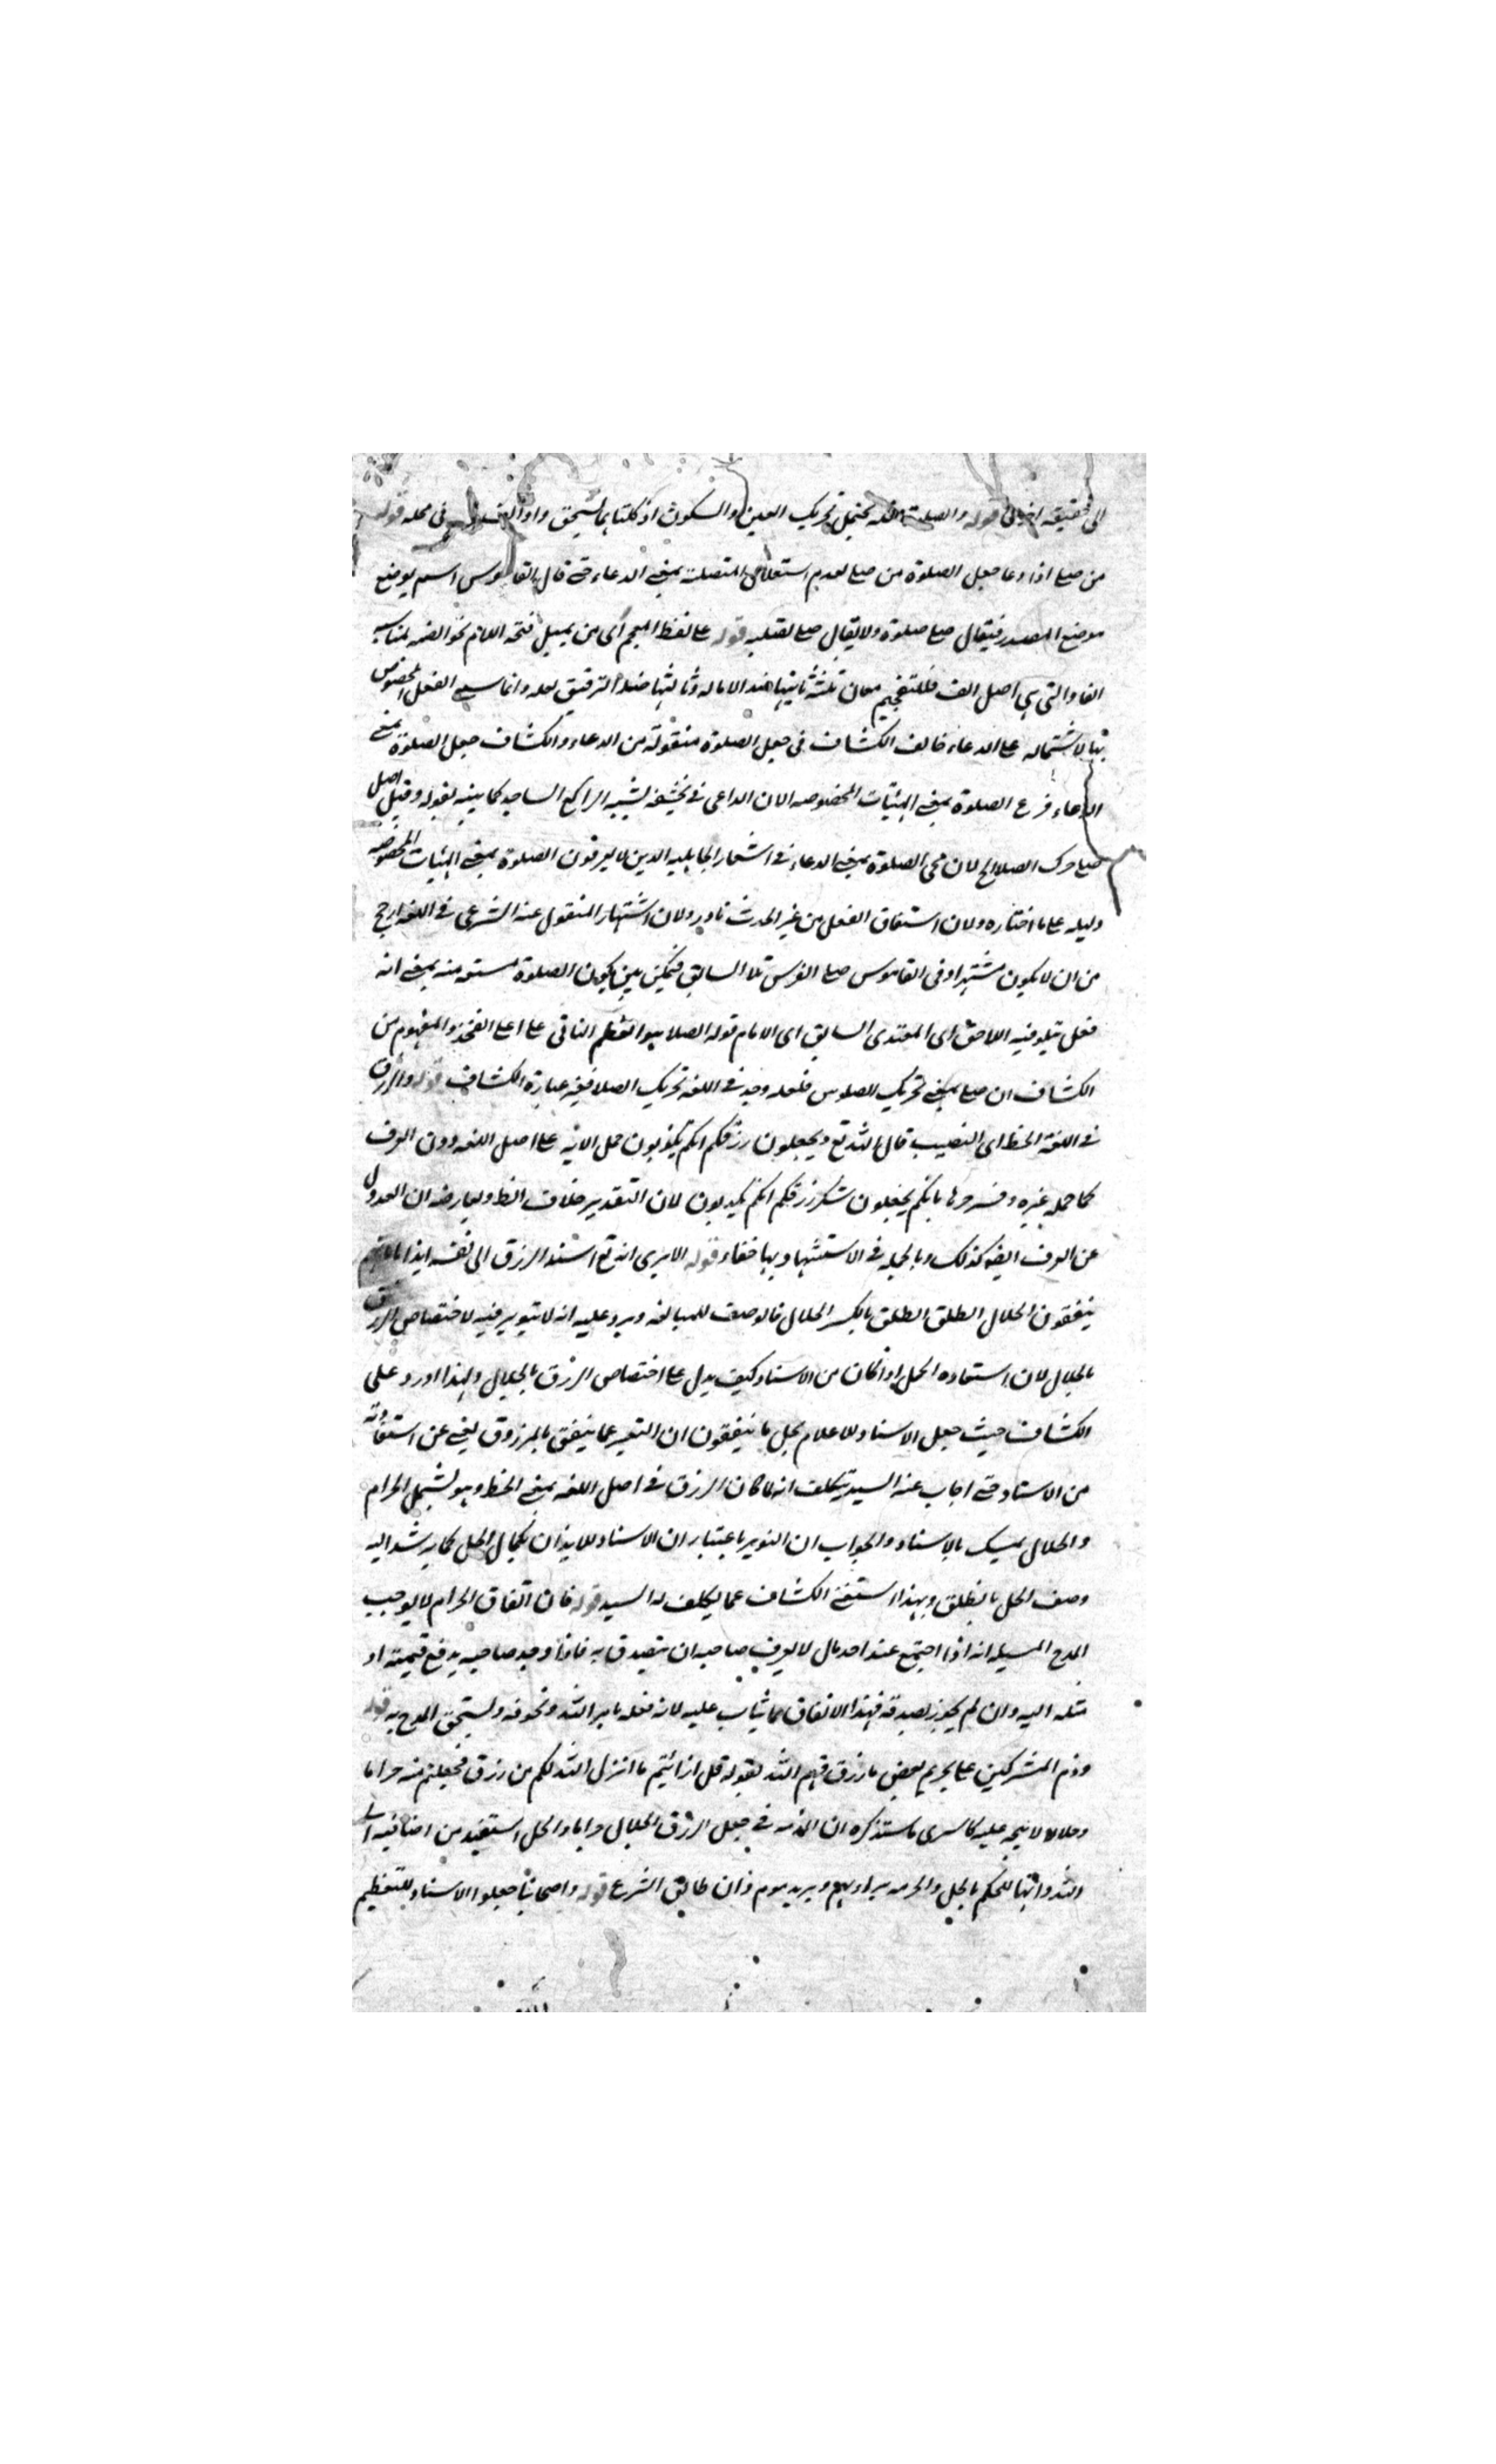 الى حقيقته اخرى قوله والصلوة فعلة يحتمل تحريك العين والسكون اذ كلتاهما يستحق واوا الفا في محله قوله
من صلى اذا دعا جعل الصلوة من صلى لعدم استعمال المتصلة بمعنى الدعاء حتى قال القاموس اسم يوضع
موضع المصدر فيقال صلى صلوة ولا يقال صلى تصلية قوله على لفظ المفخم اى من يميل فتحة اللام نحو الضمة لمناسبة
الفا والتى هي اصل الف فللتفخيم معان ثلثة ثانيها ضد الامالة وثالثها ضد الترقيق لعله وانما سمى الفعل المخصوص
بها لاشتماله على الدعاء خالف الكشاف في جعل الصلوة منقولة من الدعاء والكشاف جعل الصلوة بمعنى
الدعاء فرع الصلوة بمعنى الهيئات المخصوصة لان الداعى في تخشعه يشبه الراكع الساجد كما بينه بقوله وقيل اصل
صلى حرك الصلا الخ لان مجى الصلوة بمعنى الدعاء في اشعار الجاهلية الذين لا يعرفون الصلوة بمعنى الهيئات المخصوصة
دليله على ما اختاره ولان اشتقاق الفعل من غير الحدث نادر ولان اشتهار المنقول عنه الشرعى في اللغة ارجح
من ان لا يكون مشتهرا وفى القاموس صلى الفرس تلا السابق فيمكن ان يكون الصلوة مشتقة منه بمعنى انه
فعل يتلو فيه اللاحق اى المقتدى السابق اى الامام قوله الصلا هو العظم الناتى على اعلى الفخذ والمفهوم من
الكشاف ان صلى بمعنى تحريك الصلوين فلعله وجد في اللغة تحريك الصلا ففيه عبارة الكشاف قوله والرزق
في اللغة الحظ اى النصيب قال الله تع وتجعلون رزقكم انكم تكذبون حمل الاية على اصل اللغة دون العرف
كما حمله غيره وفسروها بانكم تجعلون شكر رزقكم انكم تكذبون لان التقدير خلاف الظ ويعارضه ان العدول
عن العرف ايضا كذلك وبالجملة في الاستشهاد بها خفاء قوله الا يرى انه تع اسند الرزق الى نفسه ايذانا بانهم
ينفقون الحلال الطلق الطلق بالكسر الحلال فالوصف للمبالغة ويرد عليه انه لا تنوير فيه لاختصاص الرزق
بالحلال لان استفادة الحل اذا كان من الاسناد كيف يدل على اختصاص الرزق بالحلال ولهذا اورد على
الكشاف حيث جعل الاسناد للاعلام بحل ما ينفقون ان التعبير عما ينفق بالمرزوق يغنى عن استفادته
من الاسناد حتى اجاب عنه السيد بتكلف انه لما كان الرزق في اصل اللغة بمعنى الحظ وهو يشمل الحرام
والحلال تمسك بالاسناد والجواب ان التنوير باعتبار ان الاسناد للايذان بكمال الحل كما يرشد اليه
وصف الحل بالطلق وبهذا استغنى الكشاف عما تكلف له السيد قوله فان انفاق الحرام لا يوجب
المدح المسيله انه اذا اجتمع عند احد مال لا يعرف صاحبه ان يتصدق به فاذا وجد صاحبه يدفع قيمته او
مثله اليه وان لم يجز تصدقه فهذا الانفاق مما يثاب عليه لانه فعله بامر الله ونحوه ويستحق المدح به قوله
وذم المشركين على تحريم بعض ما رزقهم الله بقوله قل ارايتم ما انزل الله لكم من رزق فجعلتم منه حراما
وحلالا لا يتجه عليه كما سرى ما ستذكره ان الذمة في جعل الرزق الحلال حراما والحل استفيد من اضافته الى
الله وانتهاء للحكم بالحل والحرمة براديهم ويريد يوم وان طابق الشرع قوله واصحابنا جعلوا الاسناد للتعظيم